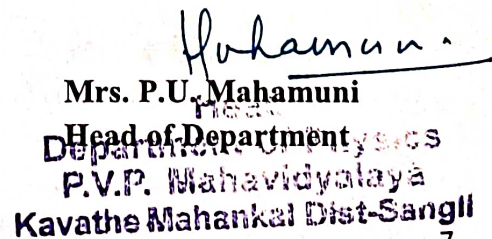 Mahamuni.
Mrs. P.U. Mahamuni
Head
Head of Department
Department of Physics
P.V.P. Mahavidyalaya
Kavathe Mahankal Dist-Sangli
7